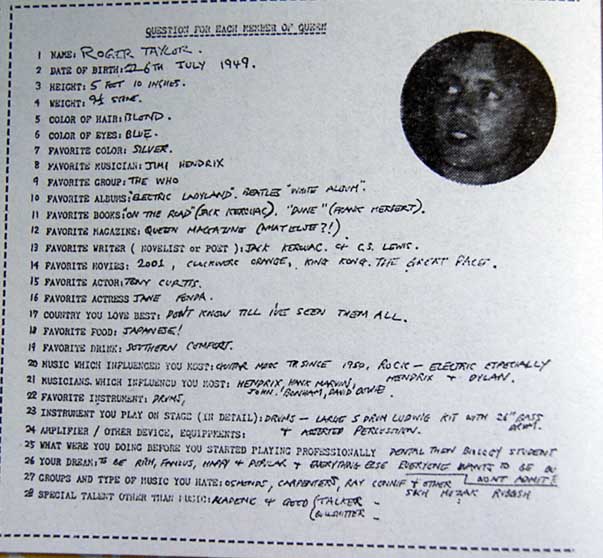 QUESTION FOR EACH MEMBER OF QUEEN
1 NAME: ROGER TAYLOR.
2 DATE OF BIRTH: 26TH JULY 1949.
3 HEIGHT: 5 FEET 10 INCHES.
4 WEIGHT: 9½ STONE.
5 COLOR OF HAIR: BLOND.
6 COLOR OF EYES: BLUE.
7 FAVORITE COLOR: SILVER.
8 FAVORITE MUSICIAN: JIMI HENDRIX
9 FAVORITE GROUP: THE WHO
10 FAVORITE ALBUMS: "ELECTRIC LADYLAND". BEATLES "WHITE ALBUM".
11 FAVORITE BOOKS: "ON THE ROAD" (JACK KEROUAC). "DUNE" (FRANK HERBERT).
12 FAVORITE MAGAZINE: QUEEN MAGAZINE (WHAT ELSE?!)
13 FAVORITE WRITER ( NOVELIST or POET ): JACK KEROUAC. C.S. LEWIS.
14 FAVORITE MOVIES: 2001, CLOCKWORK ORANGE, KING KONG. THE GREAT RACE.
15 FAVORITE ACTOR: TONY CURTIS.
16 FAVORITE ACTRESS JANE FONDA.
17 COUNTRY YOU LOVE BEST: DON'T KNOW TILL I'VE SEEN THEM ALL.
18 FAVORITE FOOD: JAPANESE!
19 FAVORITE DRINK: SOUTHERN COMFORT.
20 MUSIC WHICH INFLUENCED YOU MOST: GUITAR SINCE 1950, ROCK — ELECTRIC ESPECIALLY
HENDRIX & DYLAN.
21 MUSICIANS WHICH INFLUENCED YOU MOST: HENDRIX, HANK MARVIN,
JOHN BONHAM, DAVID BOWIE
22 FAVORITE INSTRUMENT: DRUMS,
23 INSTRUMENT YOU PLAY ON STAGE (IN DETAIL): DRUMS — LARGE 5 DRUM LUDWIG KIT WITH 26" BASS
DRUM.
& ASSORTED PERCUSSION.
24 AMPLIFIER / OTHER DEVICE, EQUIPPMENTS:
25 WHAT WERE YOU DOING BEFORE YOU STARTED PLAYING PROFESSIONALLY DENTAL THEN BIOLOGY STUDENT
26 YOUR DREAM: TO BE RICH, FAMOUS, HAPPY & POPULAR & EVERYTHING ELSE EVERYONE WANTS TO BE
WONT ADMIT!
27 GROUPS AND TYPE OF MUSIC YOU HATE: OSMONDS, CARPENTERS, RAY CONNIFF & OTHER
SUCH MUZAK RUBBISH
28 SPECIAL TALENT OTHER THAN MUSIC: ACADEMIC & GOOD (TALKER
(BULLSHITTER